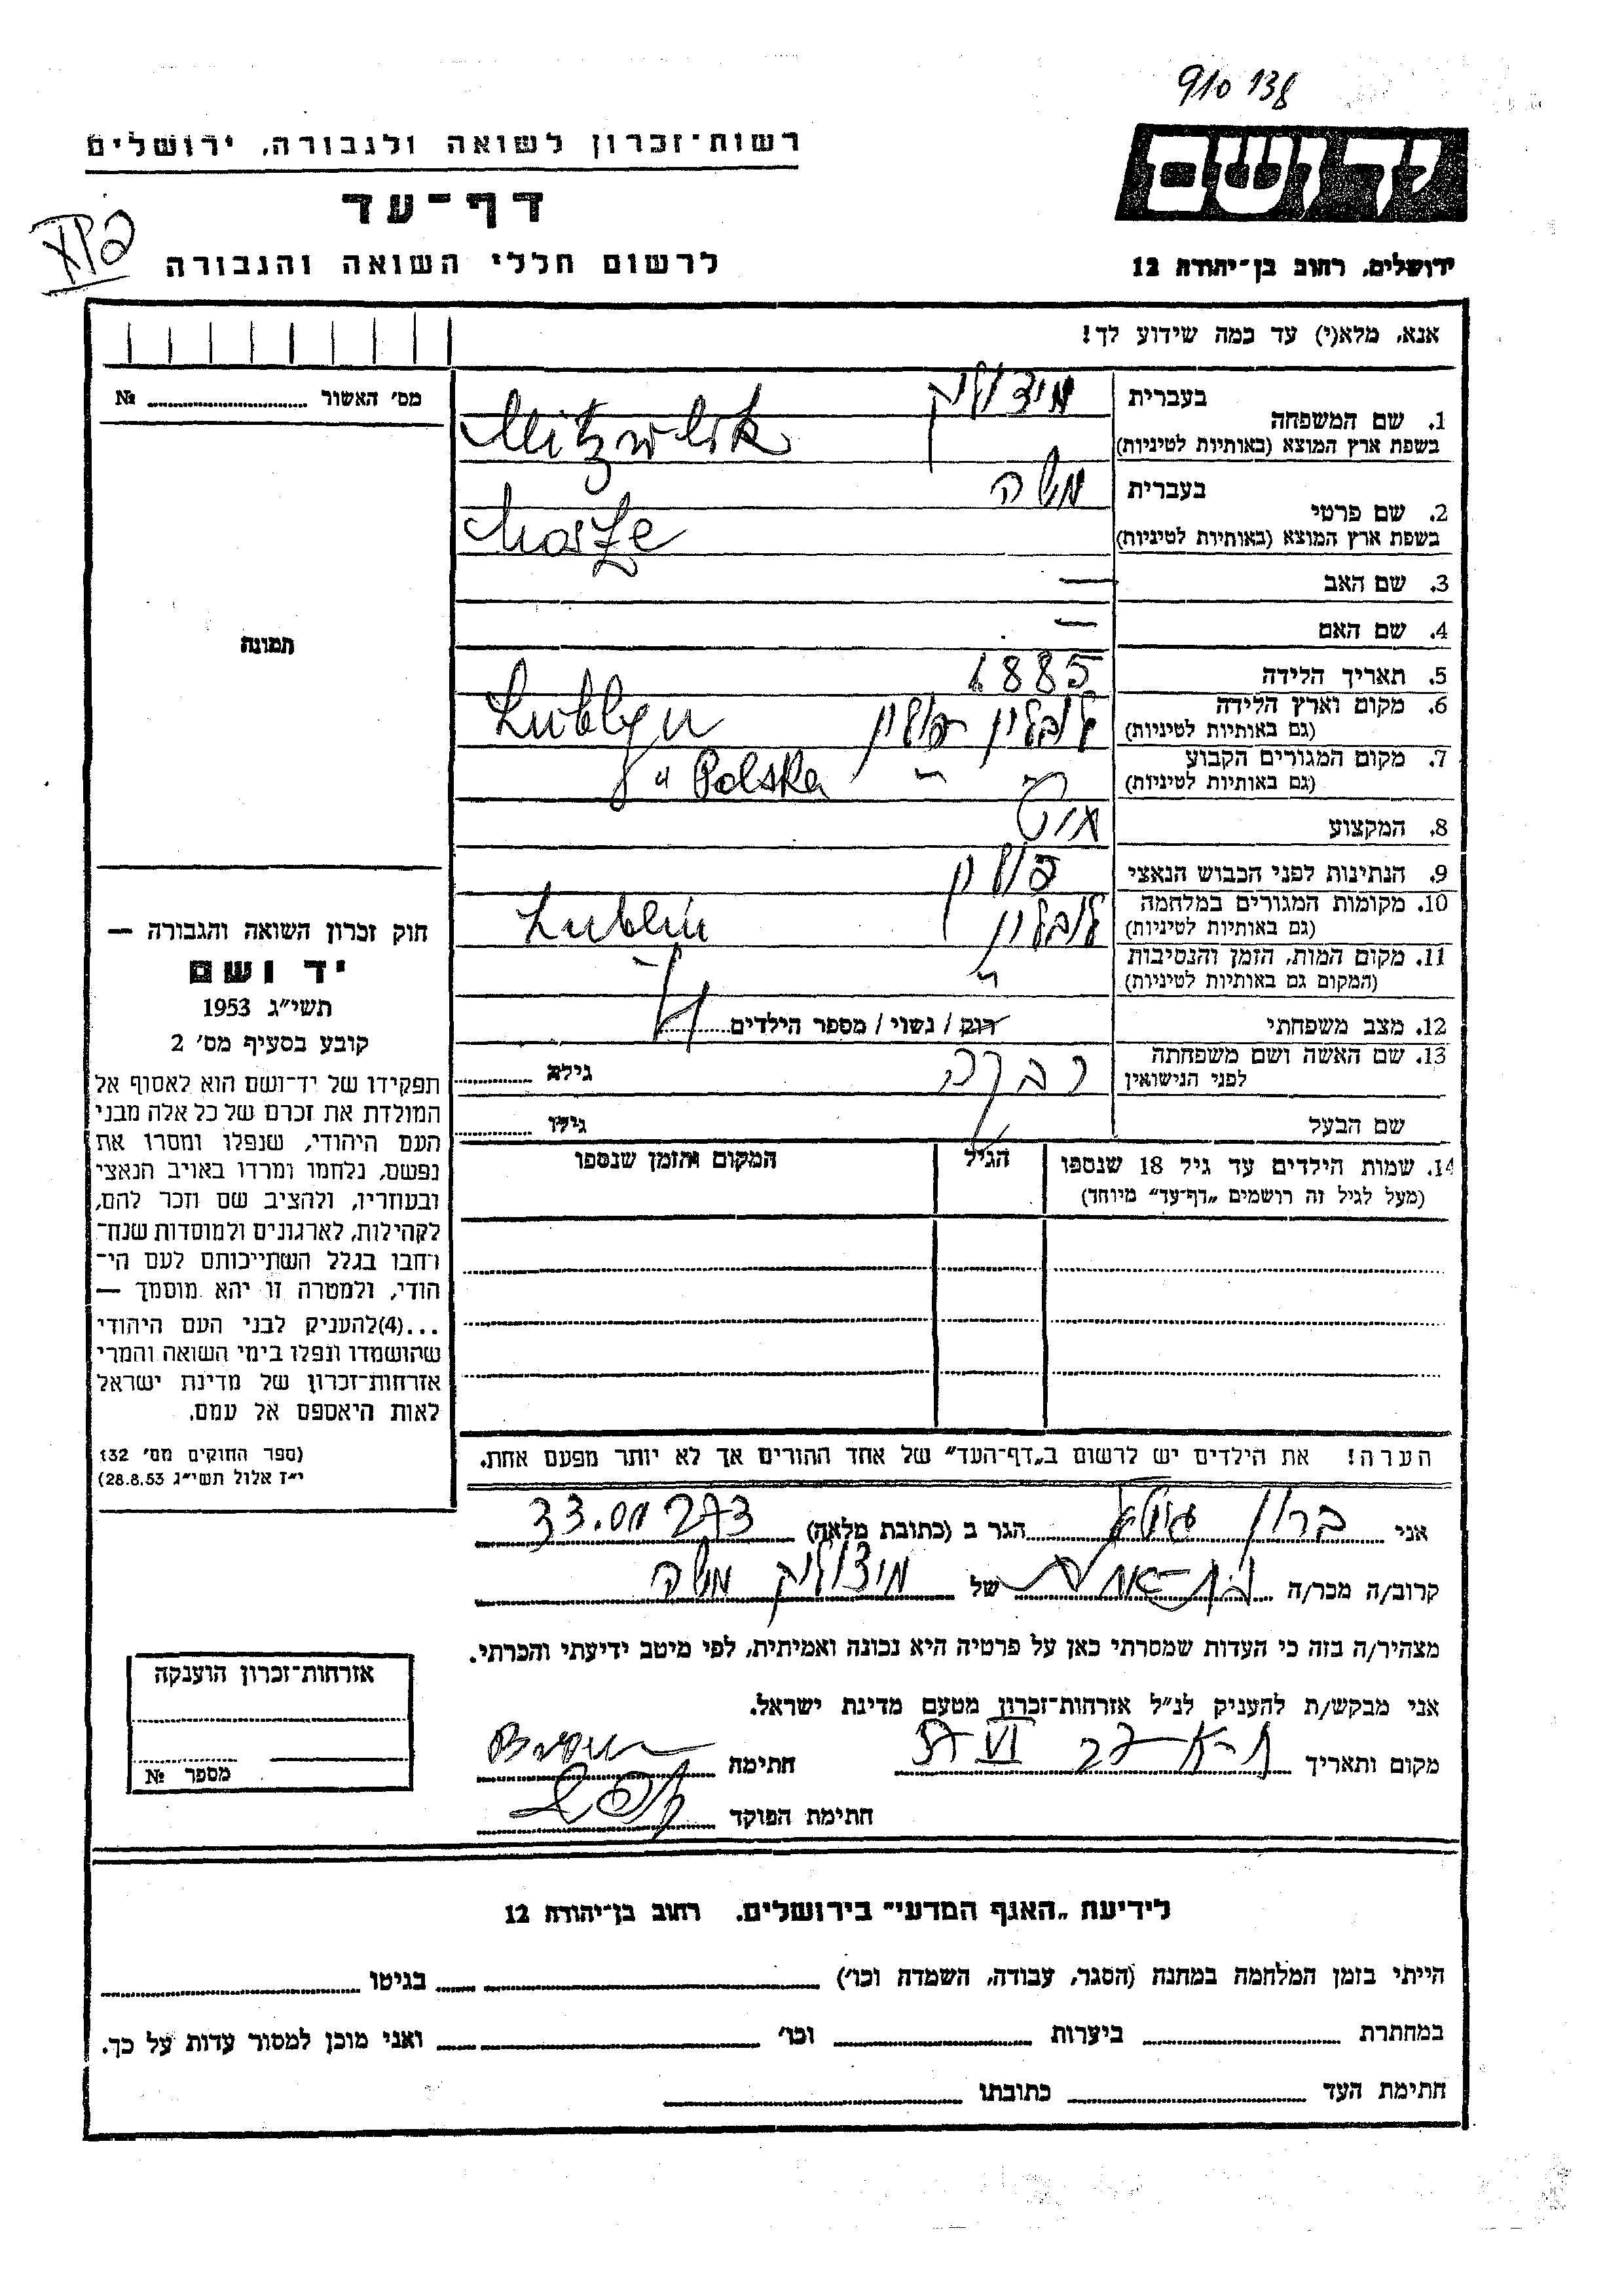 910 138
רשות־זכרון לשואה ולגבורה, ירושלים
יד ושם
דף־עד
לרשום חללי השואה והגבורה
ירושלים, רחוב בן־יהודה 12
אנא, מלא(י) עד כמה שידוע לך!
מס׳ האשור № 
1. שם המשפחה
בעברית מיצוליק
בשפת ארץ המוצא (באותיות לטיניות) Mitzwlik
2. שם פרטי
בעברית משה
בשפת ארץ המוצא (באותיות לטיניות)
3. שם האב —
4. שם האם —
5. תאריך הלידה 1885
6. מקום וארץ הלידה
(גם באותיות לטיניות) לובלין פולין Lublyn
7. מקום המגורים הקבוע
(גם באותיות לטיניות) " " Polska
8. המקצוע
9. הנתינות לפני הכבוש הנאצי פולין
10. מקומות המגורים במלחמה
(גם באותיות לטיניות) לובלין Lublin
11. מקום המות, הזמן והנסיבות
(המקום גם באותיות לטיניות) "
12. מצב משפחתי רוק / נשוי / מספר הילדים
13. שם האשה ושם משפחתה
לפני הנישואין רבקה גילה
שם הבעל גילו
14. שמות הילדים עד גיל 18 שנספו הגיל המקום והזמן שנספו
(מעל לגיל זה רושמים „דף־עד״ מיוחד)
הערה! את הילדים יש לרשום ב„דף־העד״ של אחד ההורים אך לא יותר מפעם אחת.
תמונה
חוק זכרון השואה והגבורה —
יד ושם
תשי״ג 1953
קובע בסעיף מס׳ 2
תפקידו של יד־ושם הוא לאסוף אל
המולדת את זכרם של כל אלה מבני
העם היהודי, שנפלו ומסרו את
נפשם, נלחמו ומרדו באויב הנאצי
ובעוזריו, ולהציב שם וזכר להם,
לקהילות, לארגונים ולמוסדות שנח־
רחבו בגלל השתייכותם לעם הי־
הודי, ולמטרה זו יהא מוסמך —
...(4)להעניק לבני העם היהודי
שהושמדו ונפלו בימי השואה והמרי
אזרחות־זכרון של מדינת ישראל
לאות היאספם אל עמם.
(ספר החוקים מס׳ 132
י״ז אלול תשי״ג 28.8.53)
אני ברון הגר ב (כתובת מלאה)
קרוב/ה מכר/ה של מיצוליק משה
מצהיר/ה בזה כי העדות שמסרתי כאן על פרטיה היא נכונה ואמיתית, לפי מיטב ידיעתי והכרתי.
אני מבקש/ת להעניק לנ״ל אזרחות־זכרון מטעם מדינת ישראל.
מקום ותאריך חתימה
חתימת הפוקד
אזרחות־זכרון הוענקה
מספר №
לידיעת „האגף המדעי״ בירושלים. רחוב בן־יהודה 12
הייתי בזמן המלחמה במחנה (הסגר, עבודה, השמדה וכו׳) בגיטו
במחתרת ביערות וכו׳ ואני מוכן למסור עדות על כך.
חתימת העד כתובתו